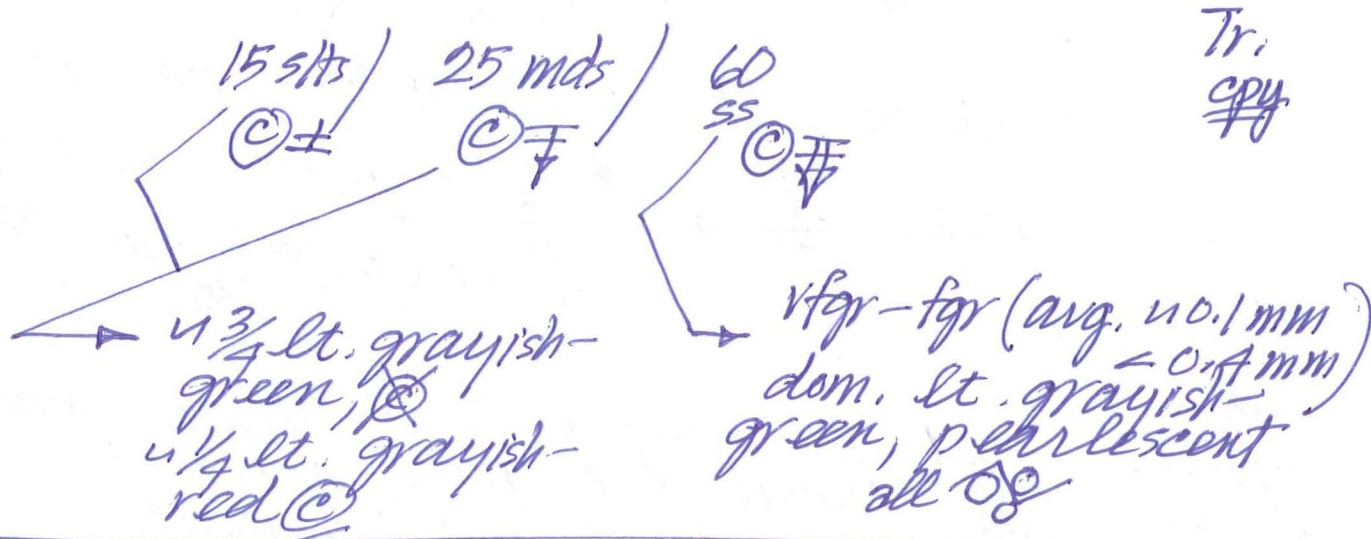 15 slts / 25 mds / 60 Tr.
ss cpy
Ⓒ ± Ⓒ Ⓒ
~ 3/4 lt. grayish-
green, Ⓒ
~ 1/4 lt. grayish-
red Ⓒ
vfgr-fgr (avg. ~0.1 mm
< 0.4 mm)
dom. lt. grayish-
green, pearlescent
all